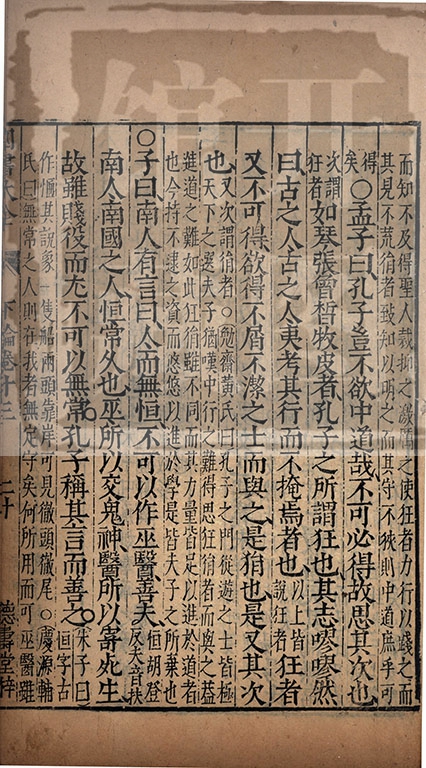 而知不及得聖人裁抑之激厲之使狂者力行以踐之而
其見不荒狷者致知以明之而其守不狹則中道庶乎可
得矣○孟子曰孔子豈不欲中道哉不可必得故思其次也
次謂狂者如琴張曾晳牧皮者孔子之所謂狂也其志嘐嘐然
曰古之人古之人夷考其行而不掩焉者也以上皆說狂者狂者
又不可得欲得不屑不潔之士而與之是狷也是又其次
也又次謂狷者○勉齋黃氏曰孔子之門從遊之士皆極
天下之選夫子猶嘆中行之難得思狂狷者而與之蓋
進道之難如此狂狷雖不同而其力量皆足以進於道者
也今持不逮之資而悠悠以進於學是皆夫子之所棄也
○子曰南人有言曰人而無恒不可以作巫醫善夫恒胡登反夫音扶
南人南國之人恒常久也巫所以交鬼神醫所以寄死生
故雖賤役而尤不可以無常孔子稱其言而善之朱子曰恒字古
作㥜其說象一隻船兩頭靠岸可見徹頭徹尾○慶源輔
氏曰無常之人則在我者無定守矣何所用而可巫醫雖
書大全 下論卷十三 二十 德壽堂梓